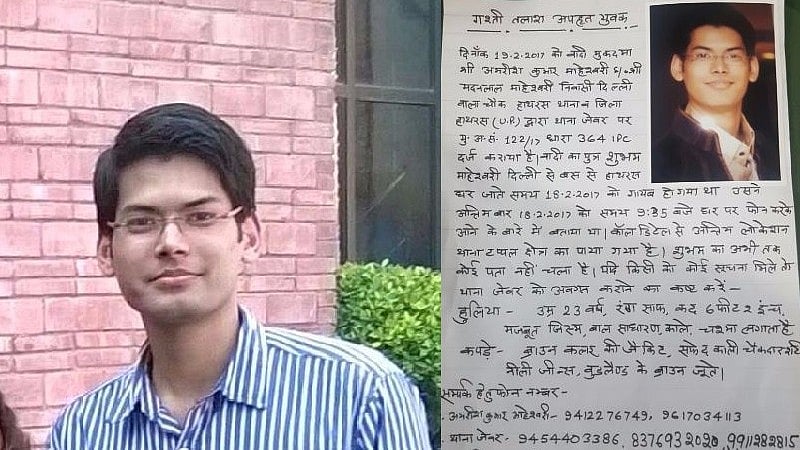 गश्ती तलाश अपहृत युवक
दिनाँक 19.2.2017 को वादी मुकदमा
श्री अमरीश कुमार माहेश्वरी S/० श्री
मदनलाल माहेश्वरी निवासी दिल्ली
वाला चौक हाथरस थाना व जिला
हाथरस (U.P.) द्वारा थाना जेवर पर
मु॰अ॰सं॰ 122/17 धारा 364 IPC
दर्ज कराया है। वादी का पुत्र शुभम
माहेश्वरी दिल्ली से बस से हाथरस
घर जाते समय 18.2.2017 को गायब हो गया था उसने
अन्तिम बार 18.2.2017 को समय 9:35 बजे घर पर फोन करके
आने के बारे में बताया था। कॉल डिटेल से अन्तिम लोकेशन
थाना टप्पल क्षेत्र का पाया गया है। शुभम का अभी तक
कोई पता नहीं चला है। यदि किसी को कोई सूचना मिले तो
थाना जेवर को अवगत कराने का कष्ट करें -
हुलिया - उम्र 23 वर्ष, रंग साफ, कद 6 फीट 2 इंच,
मजबूत जिस्म, बाल साधारण, काले, चश्मा लगाता है
कपड़े - ब्राउन कलर की जैकिट, सफेद काली चैकदार शर्ट
नीली जीन्स, वुडलैण्ड के ब्राउन जूते।
सम्पर्क हेतु फोन नम्बर -
अमरीश कुमार माहेश्वरी - 9412276749, 9617034113
थाना जेवर - 9454403386, 8376932020, 9911282815